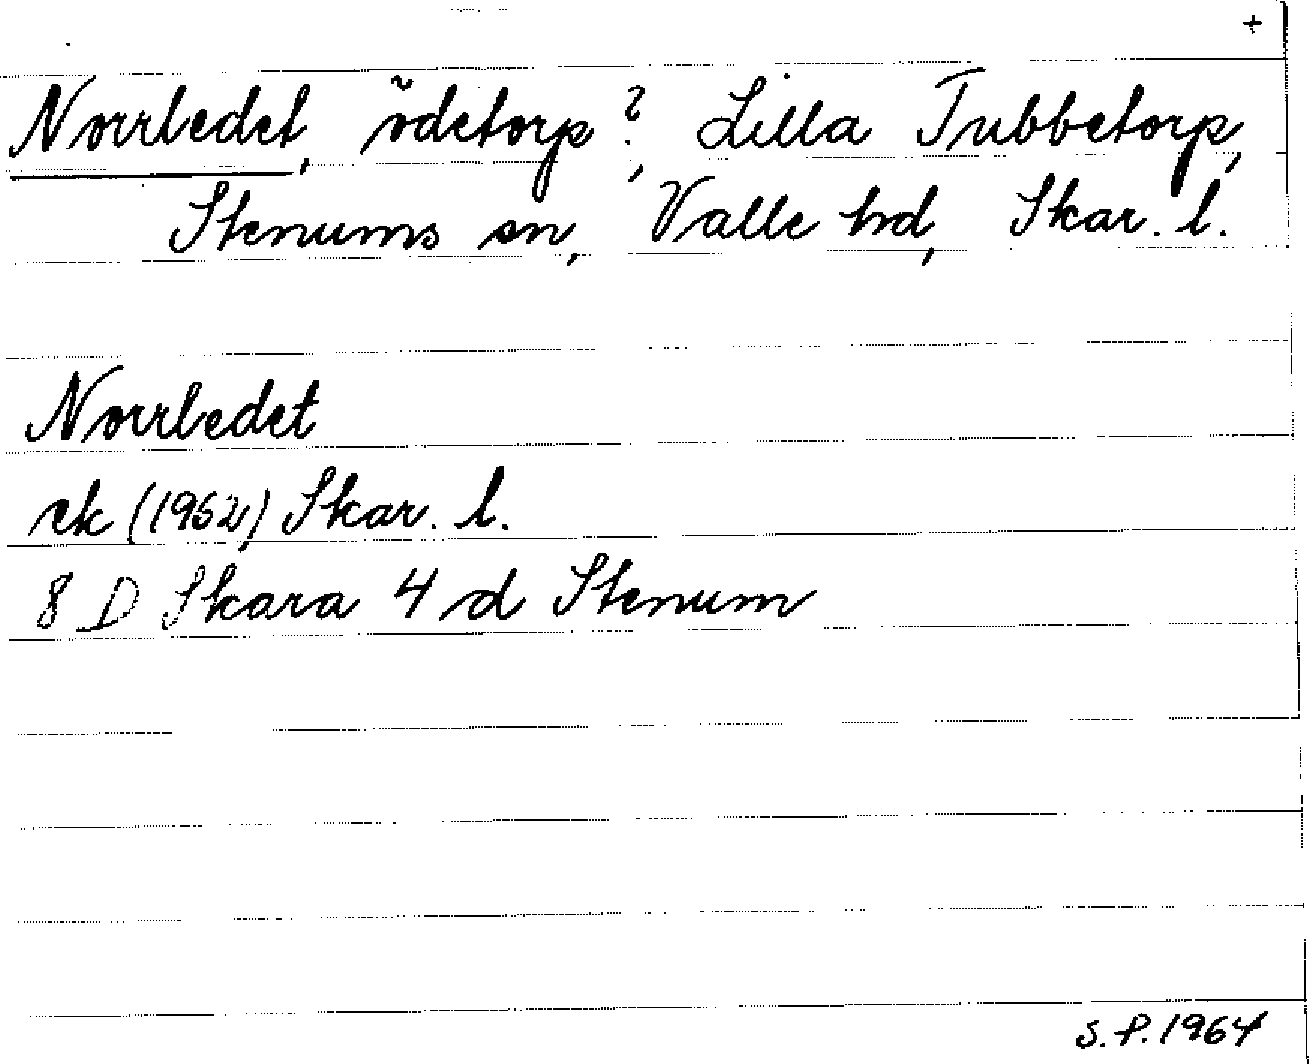 +
Norrledet, ödetorp ?, Lilla Tubbetorp,
Stenums sn, Valle hd, Skar. l.
Norrledet
ek (1952) Skar. l.
8 D Skara 4 d Stenum
S.P. 1964